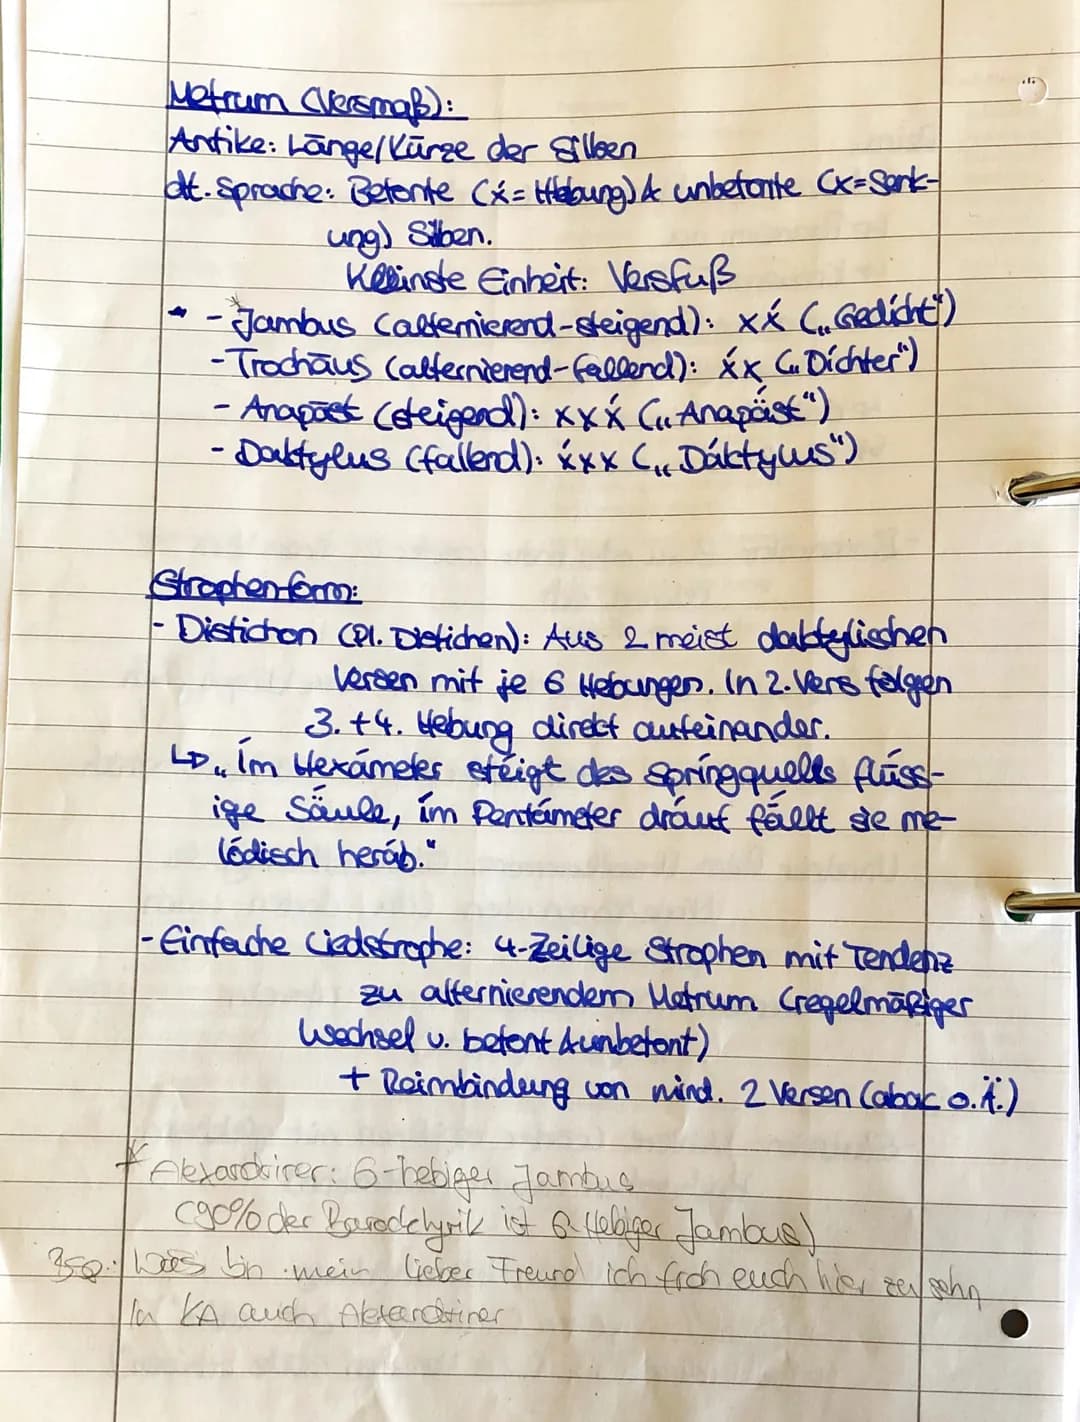 Metrum (Versmaß):
Antike: Länge/Kürze der Silben
dt. Sprache: Betonte (x́ = Hebung) & unbetonte (x = Senk-
ung) Silben.
Kleinste Einheit: Versfuß
- *Jambus (alternierend-steigend): xx́ („Gedícht")
- Trochäus (alternierend-fallend): x́x („Díchter")
- Anapäst (steigend): xxx́ („Anapä́st")
- Daktylus (fallend): x́xx („Dáktylus")
Strophenform:
- Distichon (Pl. Distichen): Aus 2 meist daktylischen
Versen mit je 6 Hebungen. In 2. Vers folgen
3. + 4. Hebung direkt aufeinander.
↳ „Ím Hexámeter stéigt des Spríngquells flǘss-
ige Sä́ule, ím Pentámeter dráuf fä́llt sie me-
lódisch heráb."
- Einfache Liedstrophe: 4-Zeilige Strophen mit Tendenz
zu alternierendem Metrum (regelmäßiger
Wechsel v. betont & unbetont)
+ Reimbindung von mind. 2 Versen (abac o.Ä.)
* Alexandriner: 6-hebiger Jambus
(90% der Barocklyrik ist 6 Hebiger Jambus)
bin mein lieber Freund ich froh euch hier zu sehn
In KA auch Alexandriner